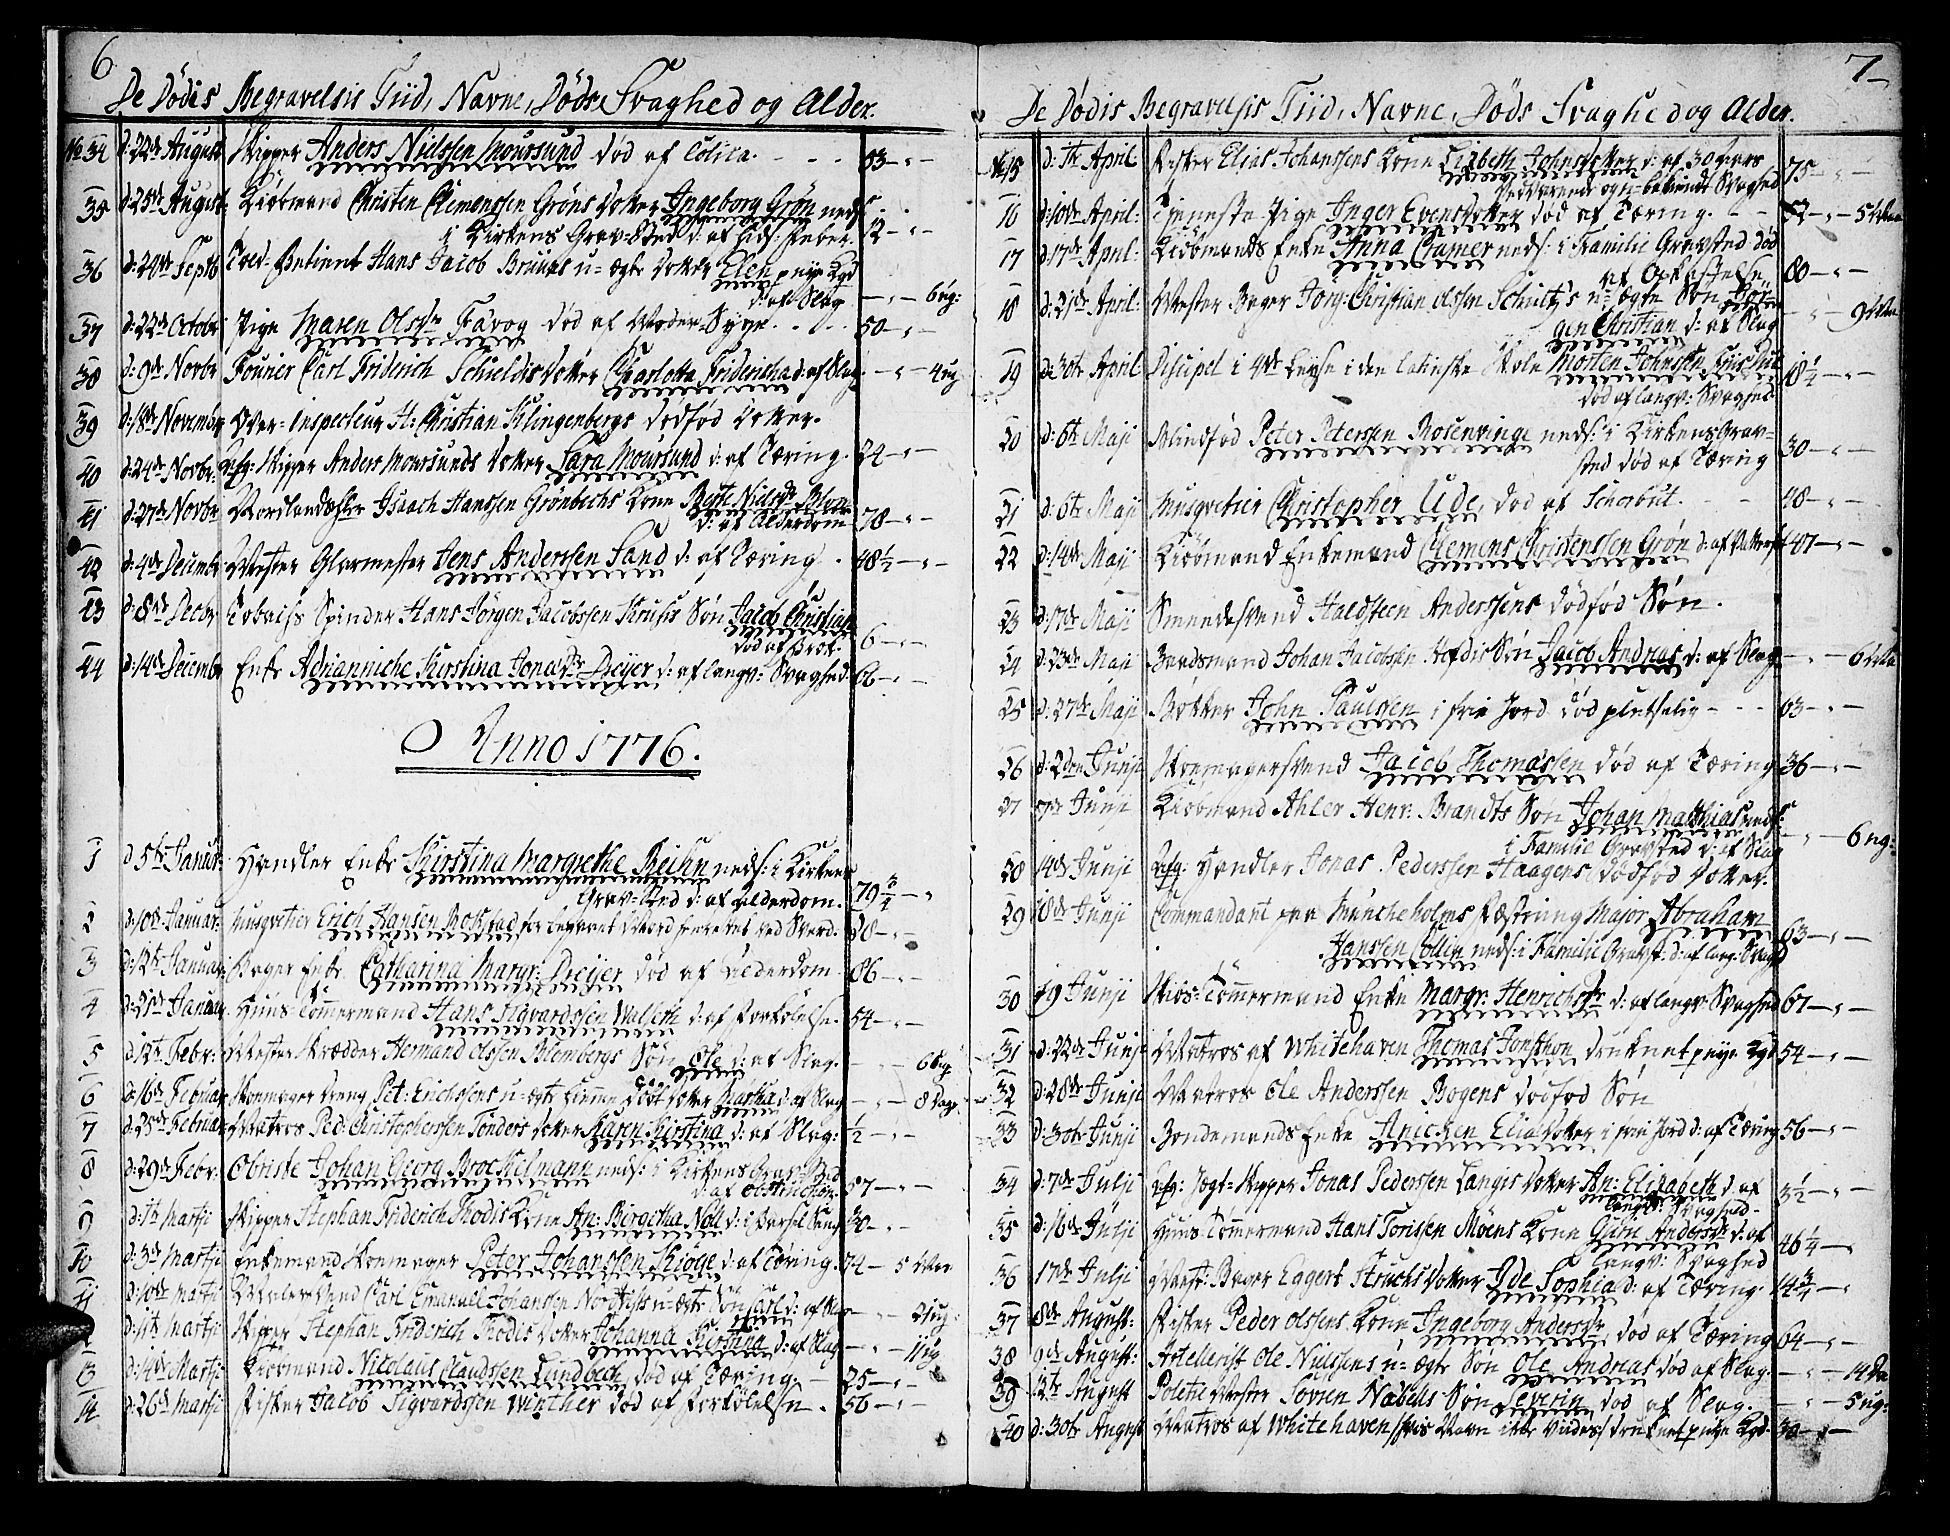 6
De Dödes Begravelsis Tiid, Navne, Döds Svaghed og Alder.
No 34 d: 22de August Skipper Anders Nielssen Moursund död af Colica. 53 — " —
35 d: 25de August Kiöbmand Christen Clemenssen Gröns Dotter Ingeborg Grön neds:
i Kirkens Grav-Sted d: af hids: Feber. 12 — " —
36 d: 24de Septb Hans Jacob Bruuns u-ægte Dotter Elen
d: af Slag — " — 6 ug:
37 d: 22de Octobr Pige Maren Olsdr Favog död af Moder-Syge. 50 — " —
38 d: 9de Novbr Fourier Carl Friderich Schieldis Dotter Charlotta Fridericha d: af Slag. — " — 4 ug
39 d: 18de November Over-Inspecteur H: Christian Klingenbergs dödföd Dotter.
40 d: 24de Novbr: Afg: Skipper Anders Moursunds Dotter Sara Moursund d: af Tæring. 22 — " —
41 d: 27de Novbr Isaach Hanssen Grönbechs Kone Berte Nielsdr
d: af Alderdom 78 — " —
42 d: 4de Decembr Mester Glarmester Jens Anderssen Sand d: af Tæring. 48½ — " —
43 d: 8de Decbr Tobachs Spinder Hans Jörgen Jacobssen Kruses Sön Jacob Christian
död af Brok. 6 — " —
44 d: 14de Decembr Enke Adrianniche Kirstina Jonædr Dreyer d: af langv: Svaghed. 66 — " —
Anno 1776.
1 d 5te Januar. Handler Enke Kirstina Margrethe Reihn neds: i Kirkens
Grav-Sted d: af Alderdom. 79¾ — "
2 d: 10de Januar: Musquetier Erich Hansen for begaaet Mord henrettet ved Sverd. 28 — " —
3 d: 12te Januari Bager Enke Catharina Margr: Dreyer död af Alderdom. 86 — " —
4 d: 21de Januar Huus-Tömmermand Hans Sigvardssen d: af Forkölelse. 54 — " —
5 d 12te Febr: Mester Skrædder Hermand Olssen Blembergs Sön Ole d: af Slag. — " — 6 ug
6 d: 16de Februar Skomager Dreng Pet: Erichsens u-ægte hiemme döbt Dotter Martha d: af Slag — " — 8 Dage
7 d: 25de Februar Matros Ped: Christophersen Tönders Dotter Karen Kirstina d: af Slag: ½ — " —
8 d: 29de Febr: Obriste Johan Georg Brockelmann neds: i Kirkens Grav-Sted
d: af Obstruction 57 — " —
9 d: 1te Martji Skipper Stephan Friderich Thodes Kone An: Birgitha Noll d: i Barsel Seng 30 — " —
10 d: 3de Martji Enkemand Skomager Peter Johanssen Kiöge d: af Tæring. 74 — 5 Uker
11 d: 10de Martii Maler Svend Carl Emanuel Johansen u-ægte Sön Carl d: af Slag — — 2 ug:
d: 11te Martji Skipper Stephan Friderich Thodes Dotter Johanna Kirstina d: af Slag — " — 1 ug
13 d: 14de Martji Kiöbmand Nicolaus Claudssen Lundbech död af Tæring. 25 — " —
14 d: 26de Martji Fisker Jacob Sigvardssen Winther död af Forkölelse. 56 — " —
7
De Dödis Begravelsis Tiid, Navne, Döds Svaghed og Alder.
No 15 d: 1te April Fisker Elias Johanssens Kone Lisbeth Johnsdotter d: af 30 Aars
Vedvarende og u-bekiendt Svaghed 75 — " —
16 d: 10de April: Tjeneste Pige Inger Evensdotter död af Tæring. 52 — " — 5 Uker
17 d: 17de April: Kiöbmands Enke Anna Cramer neds: i Familie Gravsted död
80 — " —
18 d: 21de April: Mester Bager Jörg: Christian Olssen Schultz's u-ægte Sön Jör-
gen Christian d: af Slag — " — 9 Uker
19 d: 30te April Discipel i 4de Lexe i den latinske Skole Morten Johnssen
död af langv: Svaghed 18½ — " —
20 d: 6te Maji Blindföd Peter Petersen Rosenvinge neds: i Kirkens Grav-
sted död af Tæring 30 — " —
21 d: 6te Maji Musqvetier Christopher Ude, död af Schorbut. 48 — " —
22 d: 14de Maji Kiöbmand Enkemand Clemens Christenssen Grön d: af 47 — " —
23 d: 17de Maji Smeedesvend Haldsteen Anderssens dödföd Sön.
24 d: 23de Maji Baadsmand Johan Jacobsen Sön Jacob Andreas d: af Slag — " — 6 Uker
25 d: 27de Maji Bötker John Paulssen i frie Jord död plutselig 63 — " —
26 d: 2den Junji Skomagersvend Jacob Thomassen död af Tæring 36 — " —
27 7de Junji Kiöbmand Ahler Henr: Brandts Sön Johan Matthias neds:
i Familie Gravsted d: af Slag — " — 6 ug:
28 14de Junji Afg: Handler Jonas Pederssen Haagens, dödföd Dotter.
29 18de Junji Commandant paa Muncheholms Fæstning Major Abraham
Hanssen Collin neds: i Familie Gravst: d: af lang: Svagh 63 — " —
30 19 Junji Skibs-Tömmermand Enke Margr: Henrichsdr d: af langv: Svaghed 67 — " —
31 d: 22de Junji Matros af Whitehaven Thomas Jonsthon druknet 54 — " —
32 d: 28de Junji Matros Ole Anderssen Bogens dödföd Sön
33 d: 30te Junji Bondemands Enke Anichen Eliædotter i frie Jord d: af Tæring 56 — " —
34 d: 7de Julji Afg: Jægt-Skipper Jonas Pederssen Langes Dotter An: Elizabeth d: af
langv: Svaghed 3½ — " —
35 d: 16de Julji Huus-Tömmermand Hans Torissen Möens Kone Guru Andersdr d: af
langv: Svaghed 46¼ — "
36 17de Julji Mest: Bager Eggert Struchs Dotter Ide Sophia d: af Tæring. 14¾ — "
37 8de August: Fisker Peder Olssens Kone Ingeborg Andersdr död af Tæring 64 — " —
38 9de August: Artellerist Ole Nielssens u-ægte Sön Ole Andreas död af Slag. — " — 14 Da
39 12te August Politie Mester Sövren Nabells Sön Severin död af Slag. — " — 5 ug:
40 d: 30te August Matros af Whitehaven / hvis Navn ikke vides / druknet 30 — " —